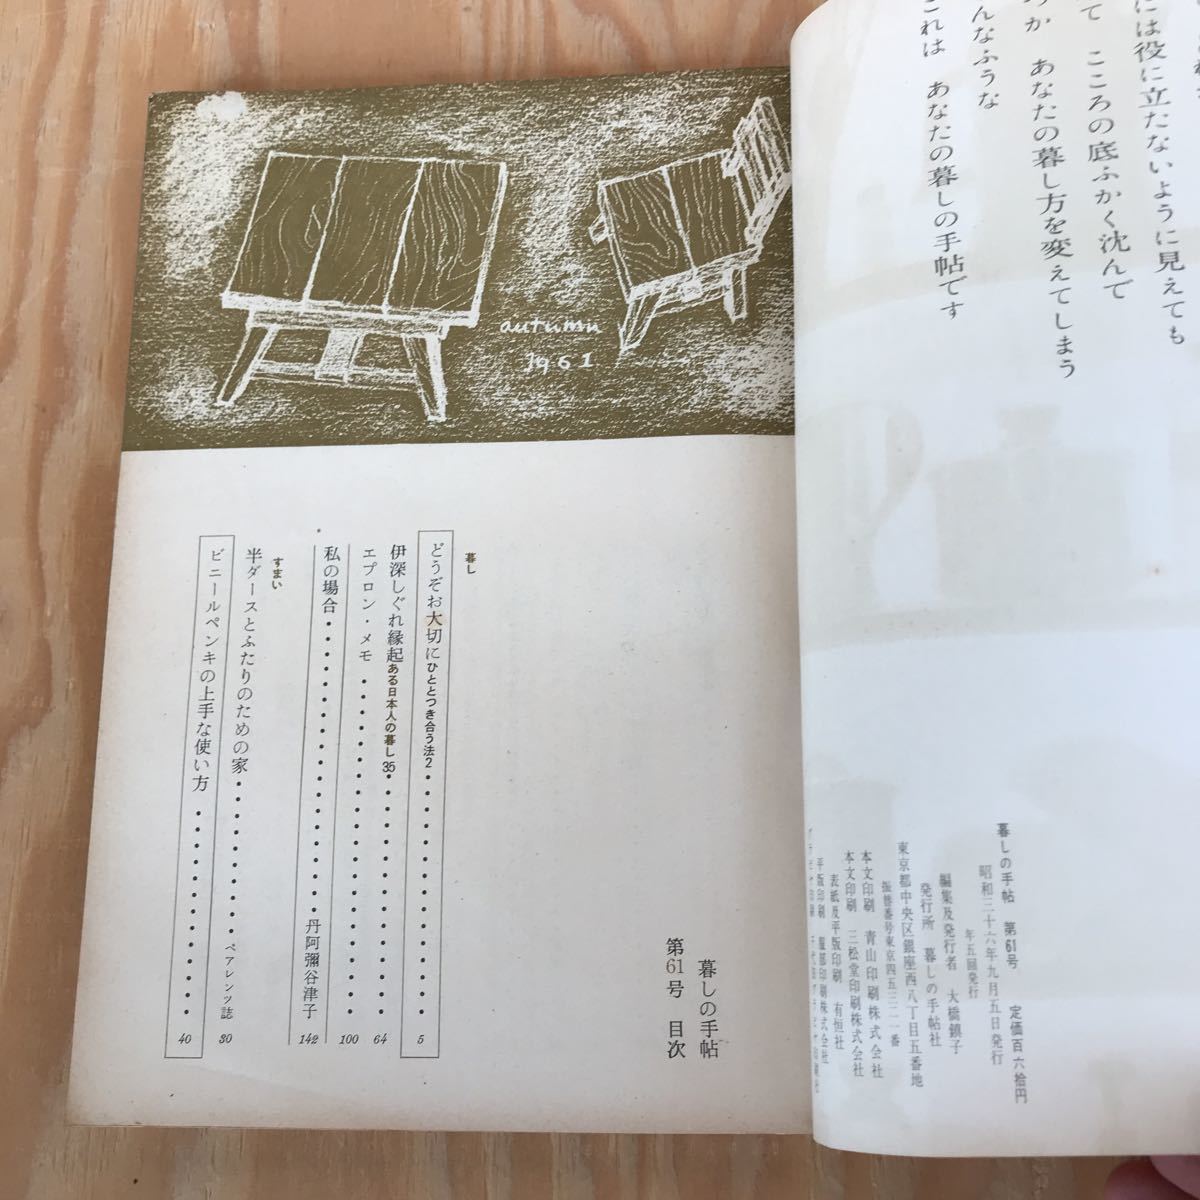 には役に立たないように見えても
て こころの底ふかく沈んで
か あなたの暮し方を変えてしまう
んなふうな
これは あなたの暮しの手帖です
暮しの手帖 第61号 定価百六拾円
昭和三十六年九月五日発行
年五回発行
編集及発行者 大橋鎭子
発行所 暮しの手帖社
東京都中央区銀座西八丁目五番地
振替番号東京四五三二一番
本文印刷 青山印刷株式会社
本文印刷 三松堂印刷株式会社
表紙及平版印刷 有恒社
平版印刷 服部印刷株式会社
autumn
1961
暮しの手帖
第61号 目次
暮し
どうぞお大切に ひととつき合う法2 5
伊深しぐれ縁起 ある日本人の暮し35 64
エプロン・メモ 100
私の場合 丹阿彌谷津子 142
すまい
半ダースとふたりのための家 ペアレンツ誌 30
ビニールペンキの上手な使い方 40